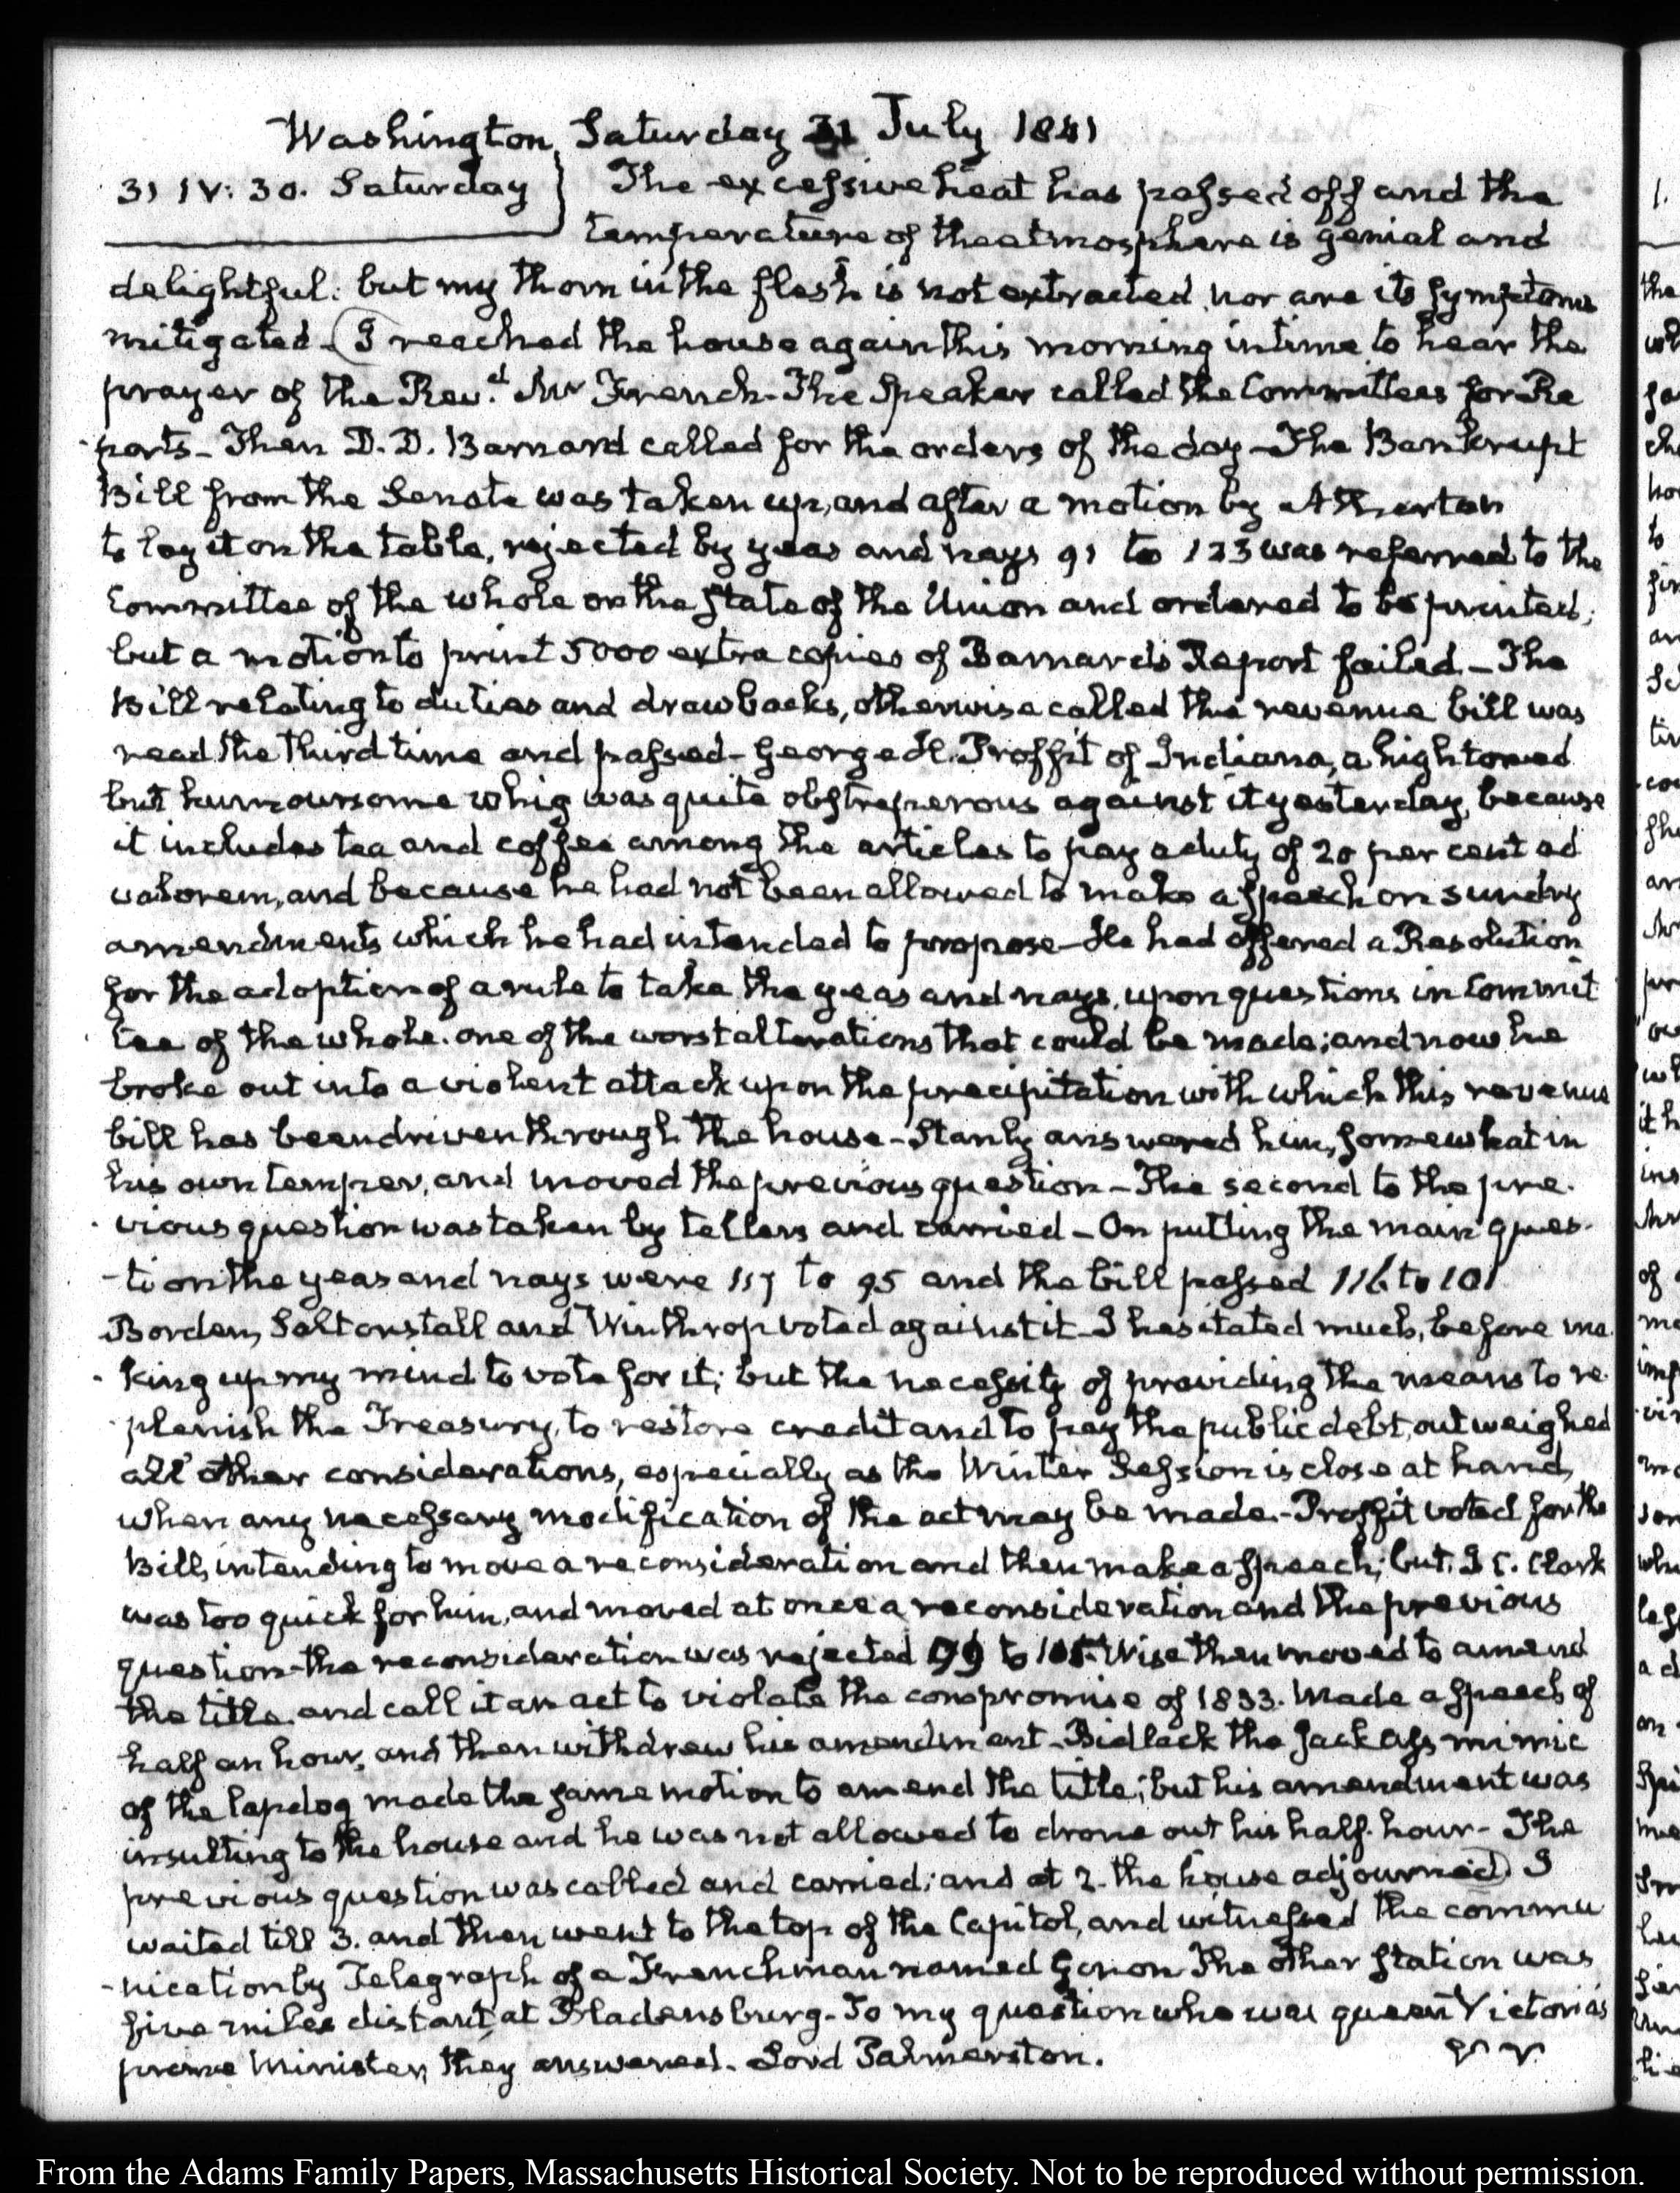 Washington, Saturday 31 July 1841
31 IV: 30. Saturday } The excessive heat has passed off and the
temperature of the atmosphere is genial and
delightful: but my thorn in the flesh is not extracted, nor are its symptoms
mitigated- (I reached the house again this morning in time to hear the
prayer of the Rev.d Mr French- The Speaker called the Committees for Re
ports- Then D. D. Barnard called for the orders of the day- The Bankrupt
Bill from the Senate was taken up, and after a motion by Atherton
to lay it on the table, rejected by yeas and nays 91 to 123 was referred to the
Committee of the whole on the State of the Union and ordered to be printed;
but a motion to print 5000 extra copies of Barnard's Report failed- The
Bill relating to duties and drawbacks, otherwise called the revenue bill was
read the third time and passed- George H. Proffit of Indiana, a high toned
but humoursome whig was quite obstreperous against it yesterday, because
it includes tea and coffee among the articles to pay a duty of 20 per cent ad
valorem, and because he had not been allowed to make a speech on sundry
amendments which he had intended to propose- He had offered a Resolution
for the adoption of a rule to take the yeas and nays, upon questions in Commit
tee of the whole. one of the worst alterations that could be made; and now he
broke out into a violent attack upon the precipitation with which this revenue
bill has been driven through the house- Stanly answered him, somewhat in
his own temper, and moved the previous question- The second to the pre-
vious question was taken by tellers and carried- On putting the main ques-
-tion the yeas and nays were 117 to 95 and the bill passed 116 to 101
Borden, Saltonstall and Winthrop voted against it- I hesitated much, before ma
king up my mind to vote for it; but the necessity of providing the means to re-
plenish the Treasury, to restore credit and to pay the public debt, outweighed
all other considerations, especially as the Winter Session is close at hand,
when any necessary modification of the act may be made.- Proffit voted for the
Bill, intending to move a reconsideration and then make a speech; but J C. Clark
was too quick for him, and moved at once a reconsideration and the previous
question- the reconsideration was rejected 99 to 105- Wise then moved to amend
the title, and call it an act to violate the compromise of 1833. Made a speech of
half an hour, and then withdrew his amendment- Bidlack the Jack Ass mimic
of the lapdog made the same motion to amend the title; but his amendment was
insulting to the house and he was not allowed to drone out his half-hour- The
previous question was called and carried; and at 2. the house adjourned) I
waited till 3. and then went to the top of the Capitol, and witnessed the commu
-nication by Telegraph of a Frenchman named Gonon The other Station was
five miles distant, at Bladensburg- To my question who was queen Victoria's
prime Minister, they answered. Lord Palmerston.
From the Adams Family Papers, Massachusetts Historical Society. Not to be reproduced without permission.